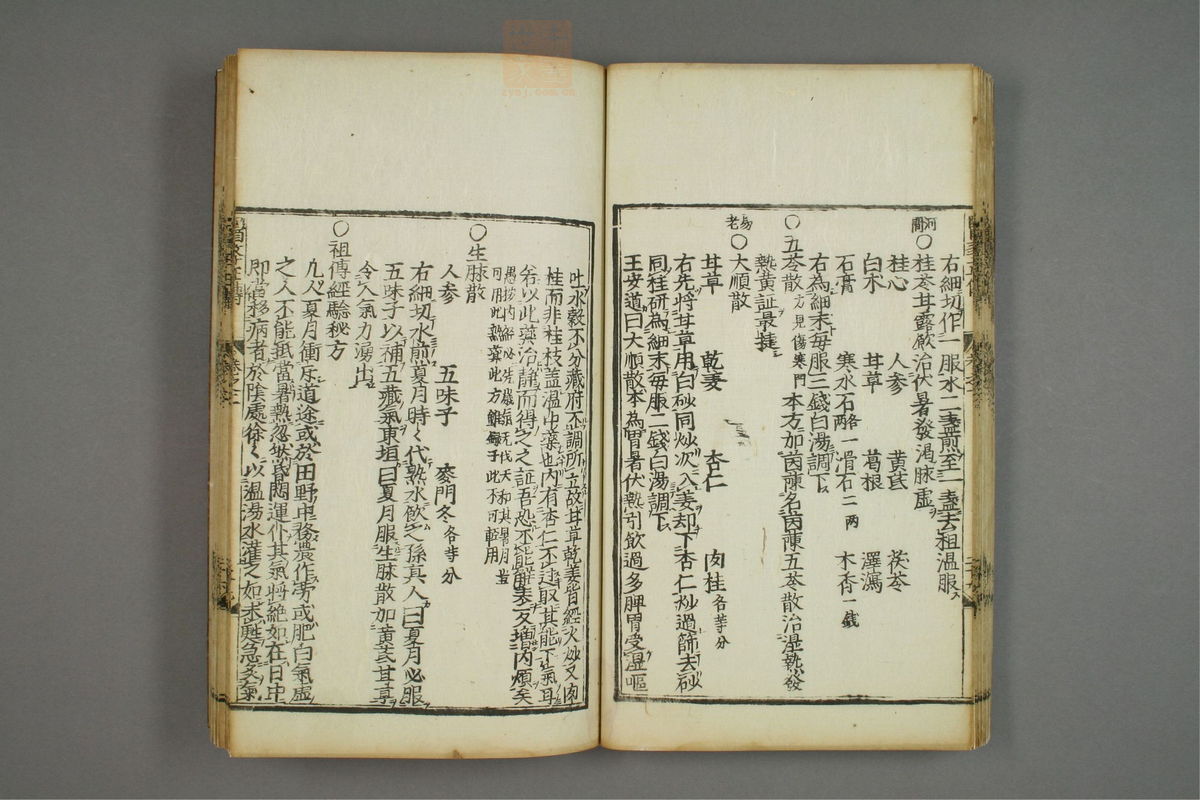 右細切作一服水二盞煎至一盞去柤溫服
河間○桂苓甘露飲治伏暑發渴脉虛
桂心 人參 黃芪 茯苓
白朮 甘草 葛根 澤瀉
石膏 寒水石各一兩 滑石二兩 木香一錢
右為細末每服三錢白湯調下
○五苓散方見傷寒門 本方加茵陳名茵陳五苓散治濕熱發
熱黃証最捷
易老○大順散
甘草 乾姜 杏仁 肉桂各等分
右先將甘草用白砂同炒次入姜却下杏仁炒過篩去砂
同桂研為細末每服二錢白湯調下
王安道曰大順散本為冒暑伏熱引飲過多脾胃受濕嘔
吐水穀不分藏府不調所立故甘草乾姜皆經火炒又肉
桂而非桂枝盖溫中藥也內有杏仁不過取其能下氣耳
若以此藥治靜而得之之証吾恐不能解表反增內煩矣
愚按內解必先歲氣无伐天和其暑月豈
可用此熱藥此方雖錄于此不可輕用
○生脉散
人參 五味子 麥門冬各等分
右細切水煎夏月時々代熟水飲之孫真人曰夏月必服
五味子以補五藏氣東垣曰夏月服生脉散加黃芪甘草
令人氣力湧出
○祖傳經驗秘方
凡人夏月衝斥道途或於田野中務農作勞或肥白氣虛
之人不能抵當暑熱忽然昏悶運仆其氣將絕如在日中
即當移病者於陰處徐々以溫湯水灌之如未甦急灸氣